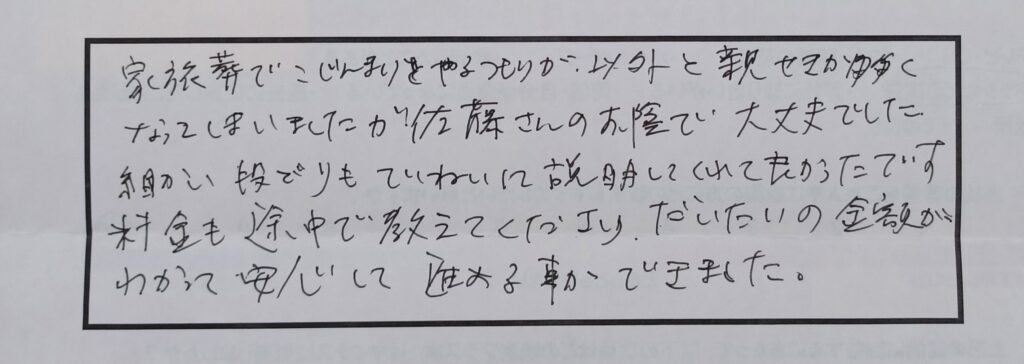 家族葬でこじんまりをやるつもりが、以外と親せきが多く
なってしまいましたが佐藤さんのお陰で大丈夫でした
細かい段どりもていねいに説明してくれて良かったです
料金も途中で教えてくださり、だいたいの金額が
わかって安心して進める事ができました。